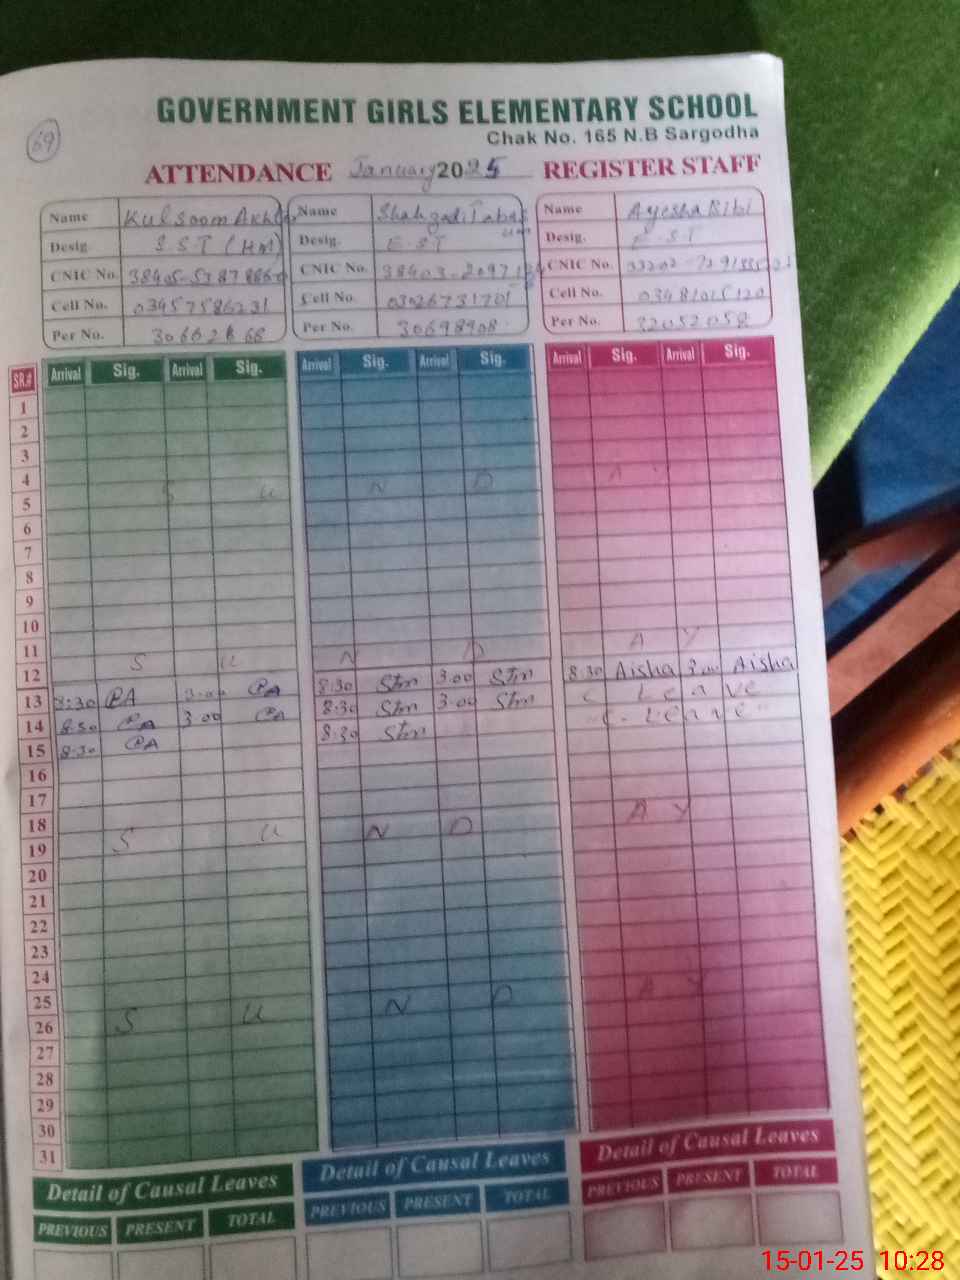 69
GOVERNMENT GIRLS ELEMENTARY SCHOOL
Chak No. 165 N.B Sargodha
ATTENDANCE January 2025 REGISTER STAFF
Name Kulsoom Name Shahzadi Name Ayesha Bibi
Desig. S.S.T (HM) Desig. E.S.T Desig. E.S.T
CNIC No. CNIC No. CNIC No.
Cell No. 03457586231 Cell No. 03026731701 Cell No.
Per No. Per No. 30698908 Per No. 32052058
SR.# Arrival Sig. Arrival Sig. Arrival Sig. Arrival Sig. Arrival Sig. Arrival Sig.
1
2
3
4 A Y
5 S U N D
6
7
8
9
10
11 A Y
12 S U N D 8:30 Aisha 3:00 Aisha
13 8:30 PA 3:00 PA 8:30 Stm 3:00 Stm C Leave
14 8:30 PA 3:00 PA 8:30 Stm 3:00 Stm "C. Leave"
15 8:30 PA 8:30 Stm
16
17
18 A Y
19 S U N D
20
21
22
23
24
25 A Y
26 S U N D
27
28
29
30
31
Detail of Causal Leaves Detail of Causal Leaves Detail of Causal Leaves
PREVIOUS PRESENT TOTAL PREVIOUS PRESENT TOTAL PREVIOUS PRESENT TOTAL
15-01-25 10:28